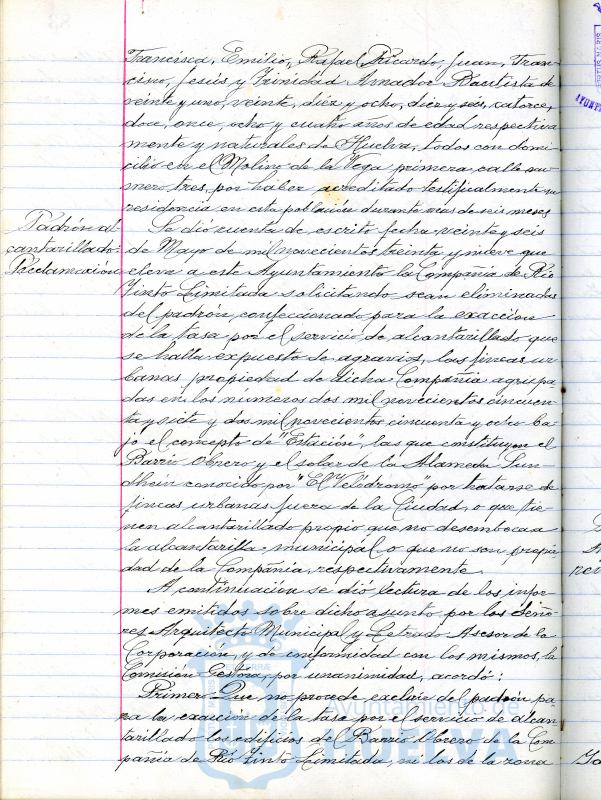 Francisca, Emilio, Rafael Ricardo, Juan, Fran-
cisco, Jesús y Trinidad Amador Bautista de
veinte y uno, veinte, diez y ocho, diez y seis, catorce,
doce, once, ocho y cuatro años de edad respectiva
mente y naturales de Huelva, todos con domi
cilio en el Molino de la Vega primera calle nú
mero tres, por haber acreditado testificalmente su
residencia en esta población durante más de seis meses
Padrón al
cantarillado:
Reclamación
Se dió cuenta de escrito fecha veinte y seis
de Mayo de mil novecientos treinta y nueve que
eleva a este Ayuntamiento la Compañía de Rio
Tinto Limitada solicitando sean eliminadas
del padrón, confeccionado para la exacción
de la tasa por el servicio de alcantarillado que
se halla expuesto de agravios, las fincas ur
banas propiedad de dicha Compañía agrupa
das en los números dos mil novecientos cincuen
ta y siete y dos mil novecientos cincuenta y ocho ba
jo el concepto de "Estación", las que constituyen el
Barrio Obrero y el solar de la Alameda Sun
dheim conocido por "El Velódromo" por tratarse de
fincas urbanas fuera de la Ciudad, o que tie-
nen alcantarillado propio que no desemboca a
la alcantarilla municipal o que no son propie
dad de la Compañía, respectivamente.
A continuación se dió lectura de los infor-
mes emitidos sobre dicho asunto por los Seño-
res Arquitecto Municipal y Letrado Asesor de la
Corporación, y de conformidad con los mismos, la
Comisión Gestora, por unanimidad, acordó:
Primero. Que no procede excluir del padrón pa-
ra la exacción de la tasa por el servicio de alcan
tarillado los edificios del Barrio Obrero de la Com
pañía de Rio Tinto Limitada, ni los de la zona
Ayuntamiento de
HUELVA